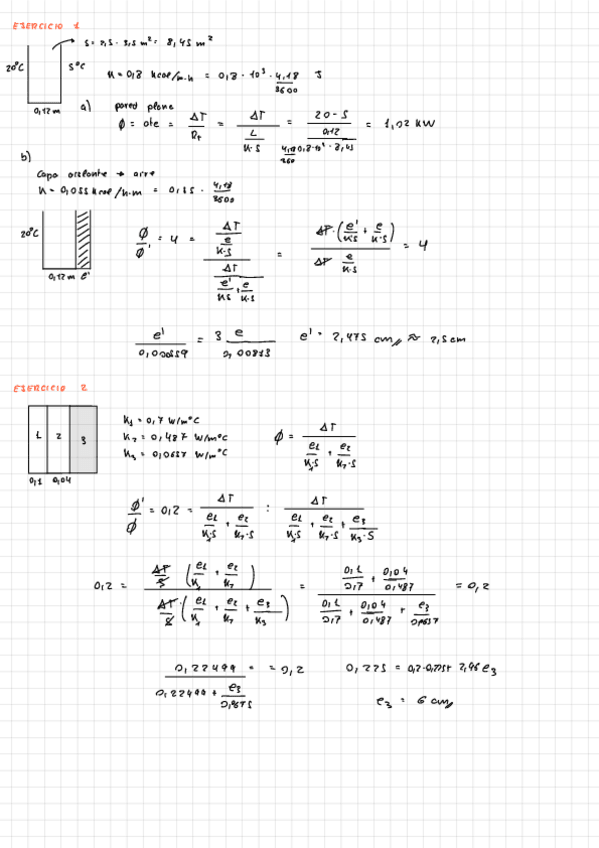 EJERCICIO 1
S = 2,5 · 3,5 m² = 8,45 m²
20°C
5°C
K = 0,8 kcal/m·h = 0,8 · 10³ · 4,18/3600 J
0,12 m
a) pared plana
Φ = cte = ΔT/RT = ΔT/(L/K·S) = 20-5 = 1,02 KW
b)
Capa aislante → aire
20°C
0,12 m e'
Φ/Φ' = 4 = ΔT/(e/K·S) / ΔT/(e'/KS + e/K·S) = ΔT · (e'/KS + e/K·S) / ΔT e/K·S = 4
= 3 e/0,00813 e' = 2,475 cm ≈ 2,5 cm
EJERCICIO 2
1 2 3
0,1 0,04
K1 = 0,7 W/m°C
K2 = 0,487 W/m°C
K3 = 0,0637 W/m°C
Φ = ΔT/(e1/K1·S + e2/K2·S)
Φ'/Φ = 0,2 = ΔT/(e1/K1·S + e2/K2·S) : ΔT/(e1/K1·S + e2/K2·S + e3/K3·S)
0,2 = ΔT/S (e1/K1 + e2/K2) / ΔT/S (e1/K1 + e2/K2 + e3/K3) = (0,1/0,7 + 0,04/0,487) / (0,1/0,7 + 0,04/0,487 + e3/0,0637) = 0,2
0,22499 + e3 = 0,2
e3 = 6 cm